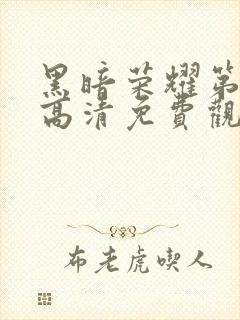 黑暗荣耀第
高清免費觀
布老虎喫人